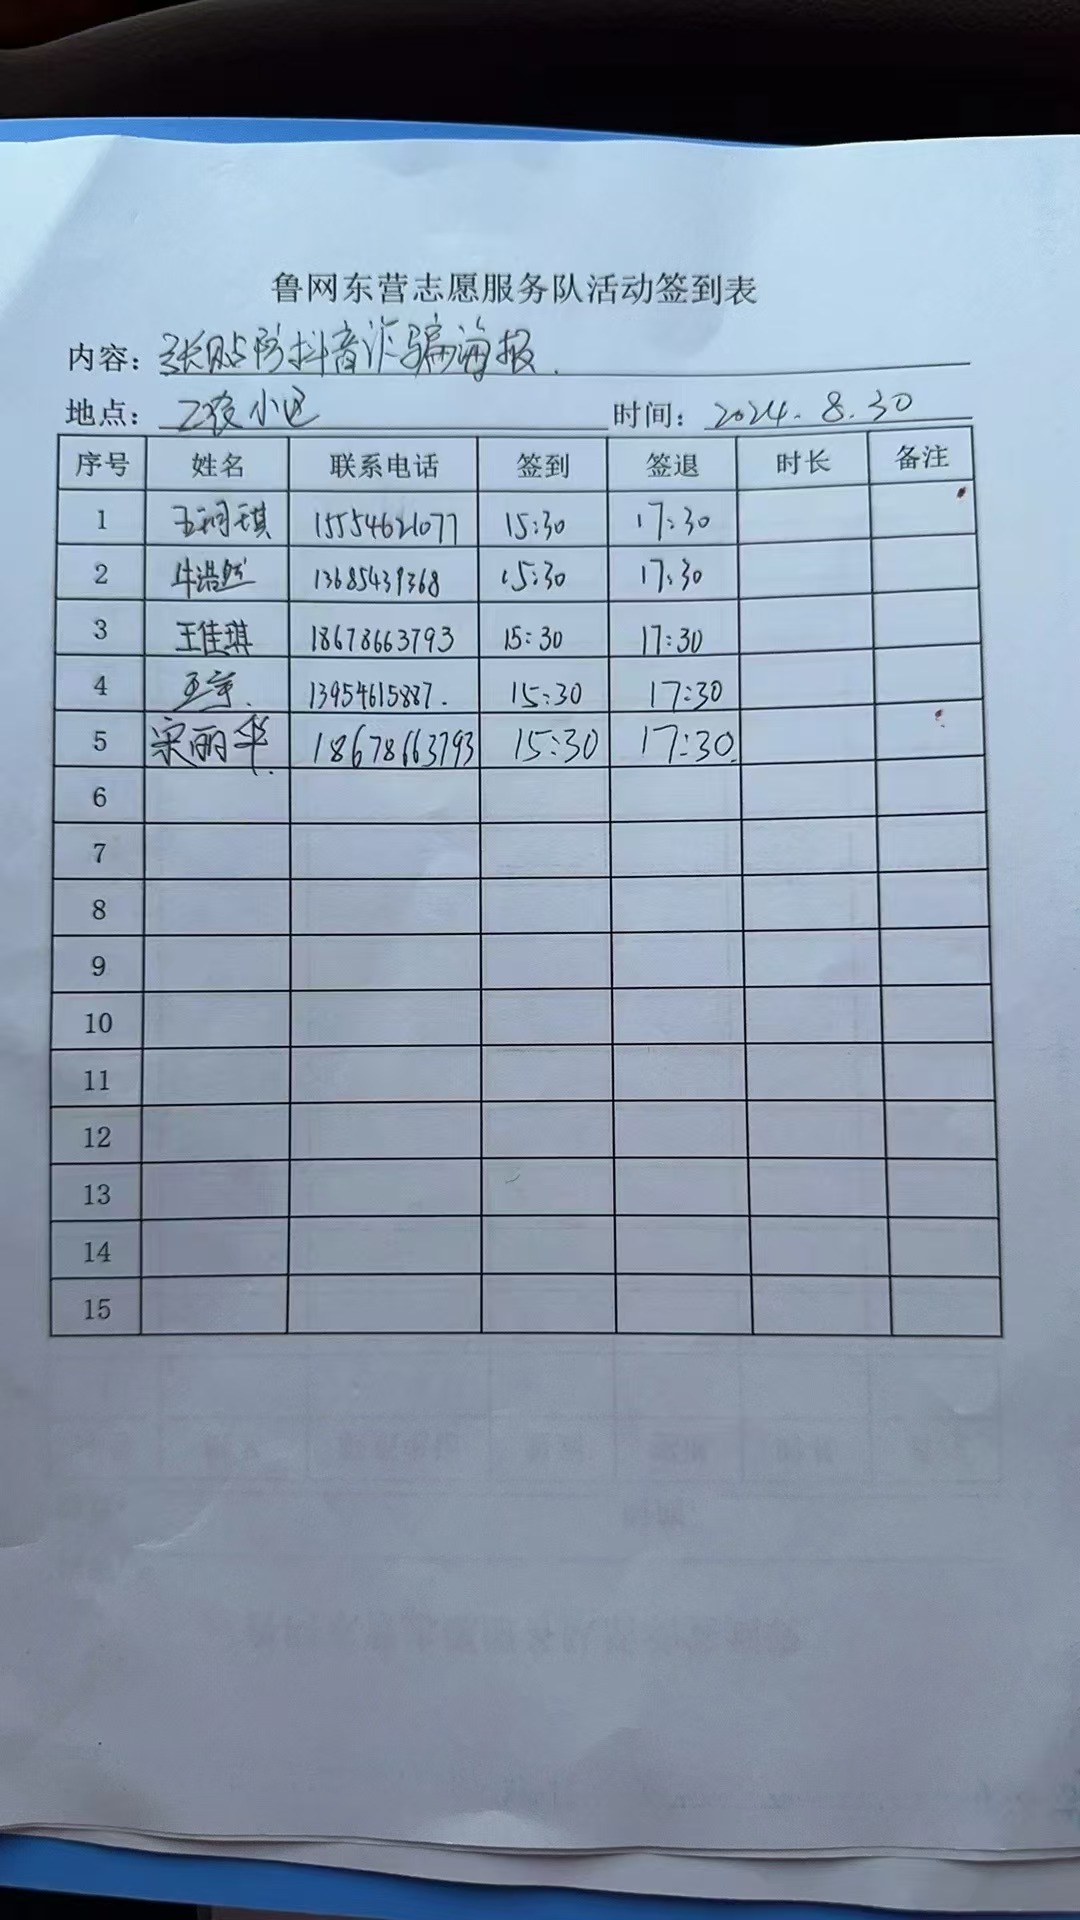 鲁网东营志愿服务队活动签到表
内容：张贴防抖音诈骗海报.
地点：工农小区 时间：2024.8.30
序号 姓名 联系电话 签到 签退 时长 备注
1 王珂琪 15554621077 15:30 17:30
2 牛浩然 13685439368 15:30 17:30
3 王佳琪 18678663793 15:30 17:30
4 13954615887. 15:30 17:30
5 宋丽华. 18678663793 15:30 17:30.
6
7
8
9
10
11
12
13
14
15